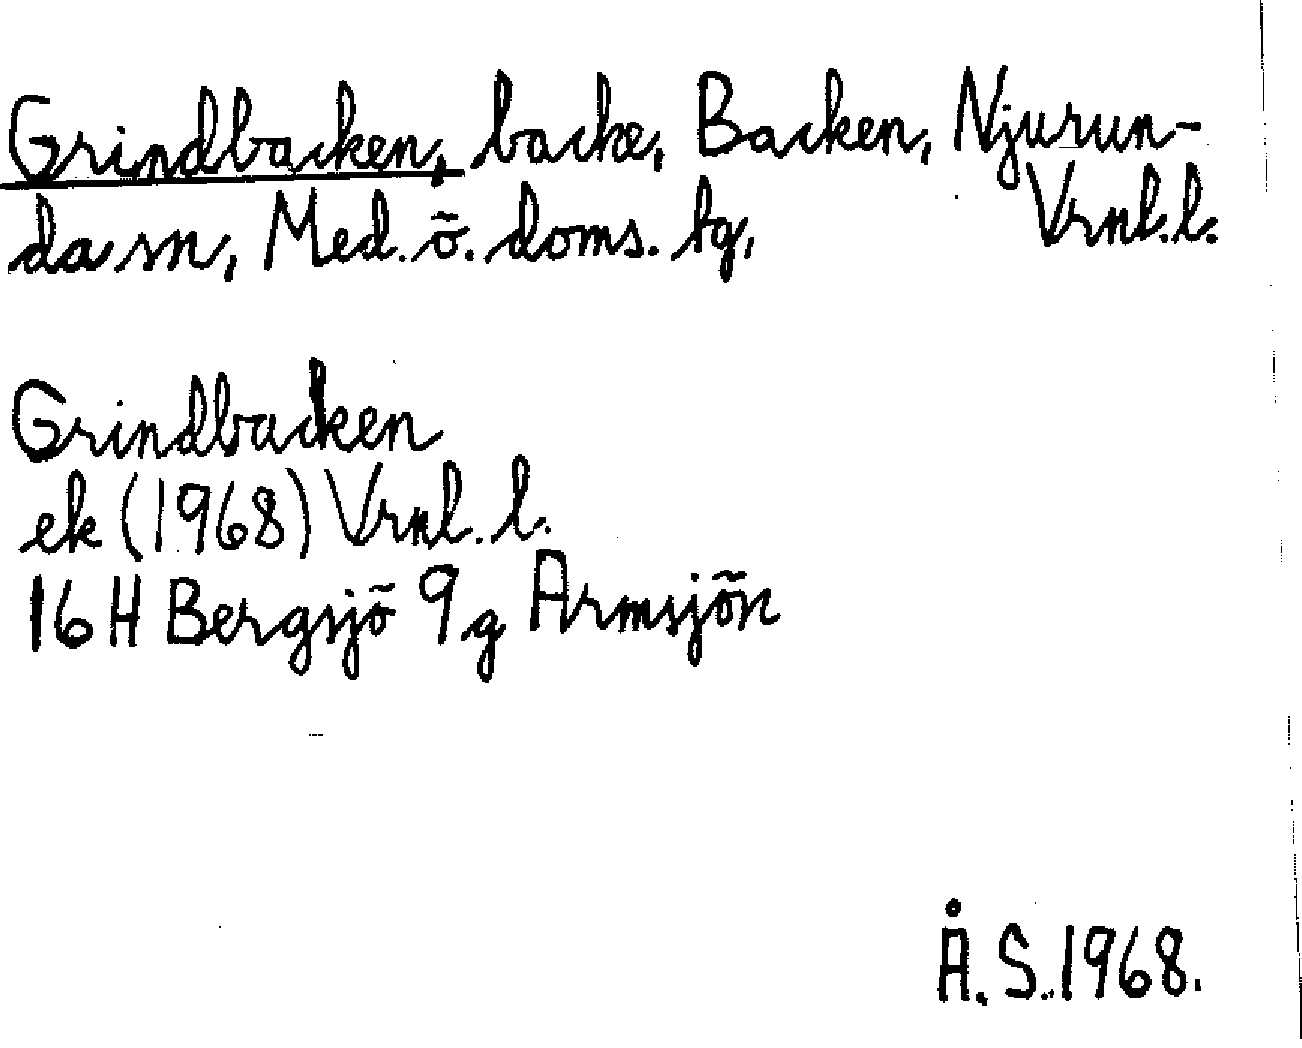 Grindbacken, backe, Backen, Njurun-
da sn, Med. ö. doms. tg, Vrnl. l.
Grindbacken
ek (1968) Vrnl. l.
16 H Bergsjö 9g Armsjön
Å. S. 1968.